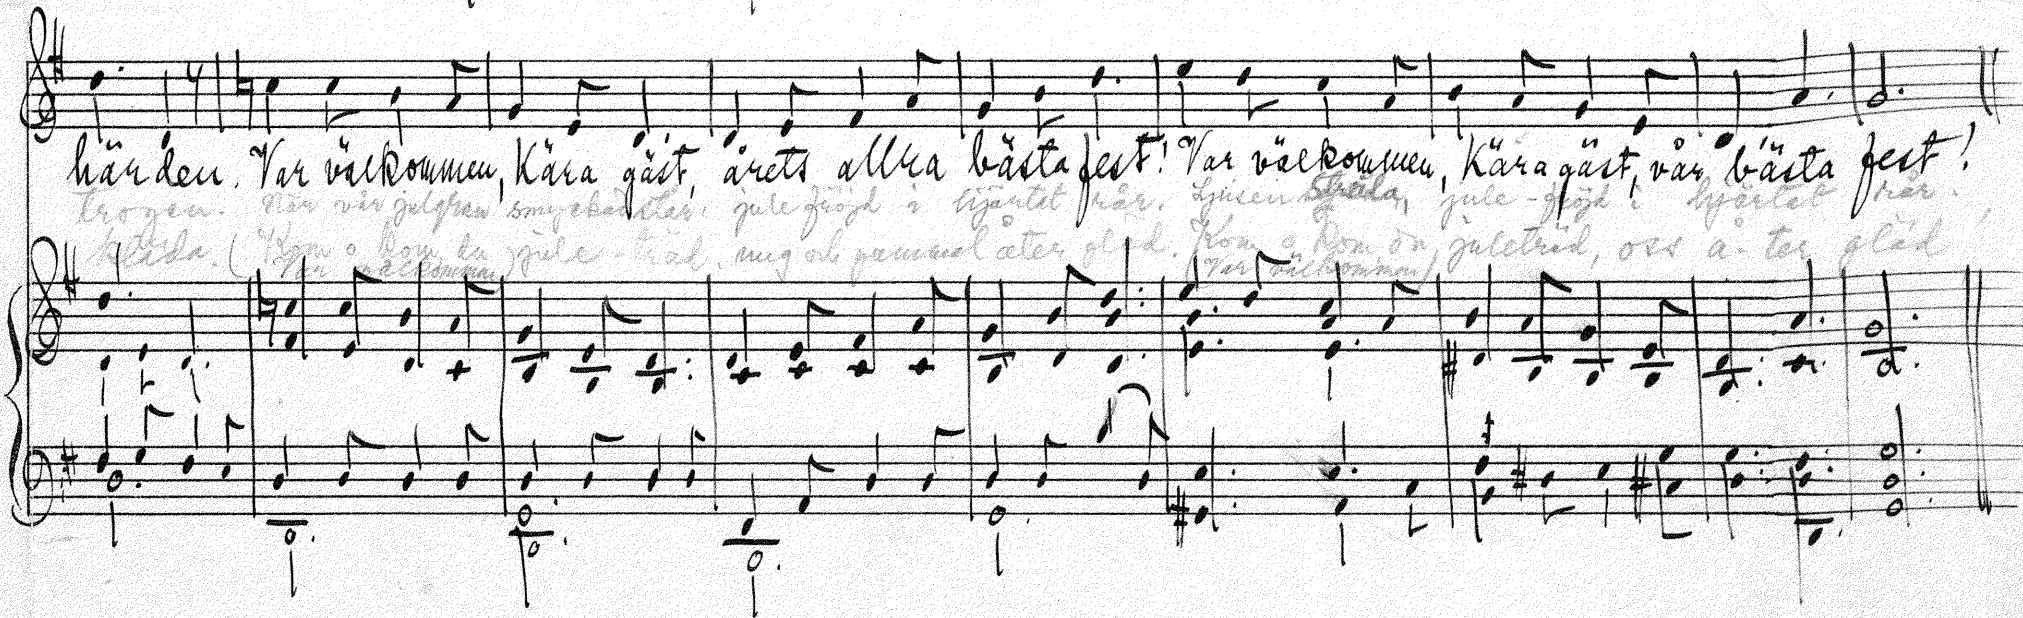 härden. Var välkommen, Kära gäst, årets allra bästa fest! Var välkommen, Kära gäst, vår bästa fest!
trogen. När vår julgran smyckad star, julefröjd i hjärtat rår. Ljusen stråla, jule-fröjd i hjärtat rår.
(Kom o kom du jule-träd, ung och gammal åter gläd. (Kom o kom du juleträd, oss å-ter gläd
Var välkommen) (Var välkommen)